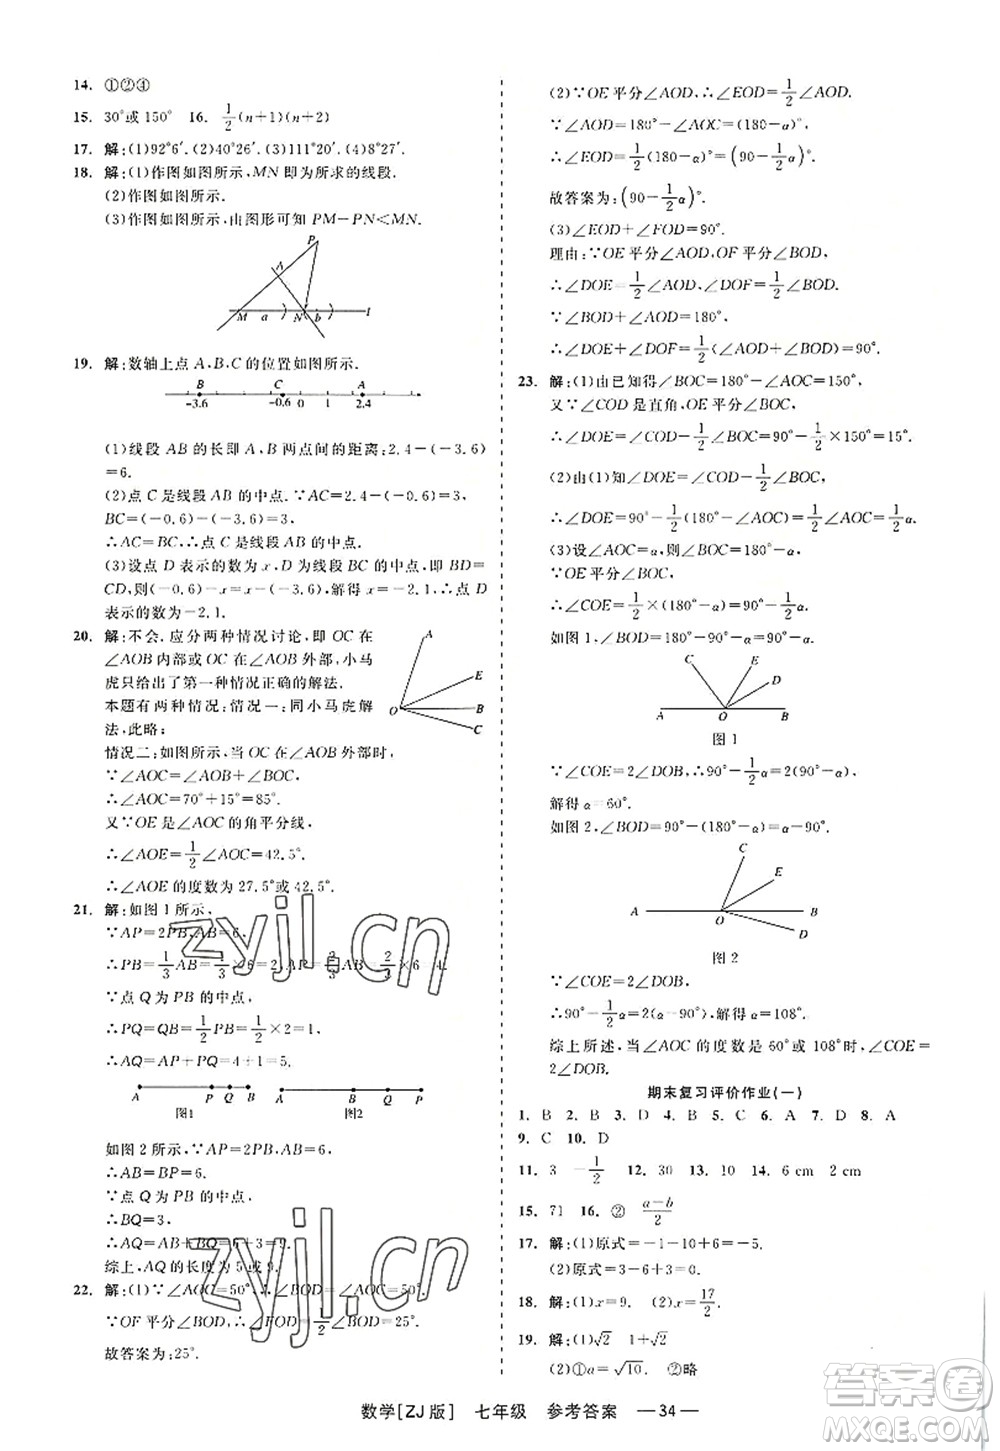 14. ①②④
15. 30°或150° 16. 1/2(n+1)(n+2)
17. 解:(1)92°6′.(2)40°26′.(3)111°30′.(4)62°24′.
18. 解:(1)作图如图所示,MN即为所求的线段.
(2)作图如图所示.
(3)作图如图所示,由图形可知PM-PN<MN.
P
A
M a N b l
19. 解:数轴上点A,B,C的位置如图所示.
B C A
-3.6 -0.6 0 1 2.4
(1)线段AB的长即A,B两点间的距离:2.4-(-3.6)
=6.
(2)点C是线段AB的中点.∵AC=2.4-(-0.6)=3,
BC=(-0.6)-(-3.6)=3;
∴AC=BC,∴点C是线段AB的中点.
(3)设点D表示的数为x,D为线段BC的中点,即BD=
CD,则(-0.6)-x=x-(-3.6),解得x=-2.1,∴点D
表示的数为-2.1.
20. 解:不会.应分两种情况讨论,即OC在
∠AOB内部或OC在∠AOB外部,小马
虎只给出了第一种情况正确的解法.
本题有两种情况:情况一:同小马虎解
法,此略;
A
E
O B
C
情况二:如图所示,当OC在∠AOB外部时,
∵∠AOC=∠AOB+∠BOC,
∴∠AOC=70°+15°=85°.
又∵OE是∠AOC的角平分线,
∴∠AOE=1/2∠AOC=42.5°.
∴∠AOE的度数为27.5°或42.5°.
21. 解:如图1所示,
∵AP=2PB,AB=6,
∴PB=1/3AB=1/3×6=2,AP=2/3AB=2/3×6=4.
∵点Q为PB的中点,
∴PQ=QB=1/2PB=1/2×2=1;
∴AQ=AP+PQ=4+1=5.
A P Q B
图1
A B Q P
图2
如图2所示,∵AP=2PB,AB=6,
∴AB=BP=6.
∵点Q为PB的中点,
∴BQ=3.
∴AQ=AB+BQ=6+3=9.
综上,AQ的长度为5或9.
22. 解:(1)∵∠AOC=50°,∴∠BOD=∠AOC=50°.
∵OF平分∠BOD,∴∠FOD=1/2∠BOD=25°.
故答案为:25°.
(2)∵OE平分∠AOD,∴∠EOD=1/2∠AOD.
∵∠AOD=180°-∠AOC=180°-α,
∴∠EOD=1/2(180-α)°=(90-1/2α)°.
故答案为:(90-1/2α)°.
(3)∠EOD+∠FOD=90°.
理由:∵OE平分∠AOD,OF平分∠BOD,
∴∠DOE=1/2∠AOD,∠DOF=1/2∠BOD.
∵∠AOD+∠BOD=180°,
∴∠DOE+∠DOF=1/2(∠AOD+∠BOD)=90°.
23. 解:(1)由已知得∠BOC=180°-∠AOC=30°.
又∵∠COD是直角,OE平分∠BOC,
∴∠DOE=∠COD-1/2∠BOC=90°-1/2×150°=15°.
(2)由(1)知∠DOE=∠COD-1/2∠BOC,
∴∠DOE=90°-1/2(180°-∠AOC)=1/2∠AOC=1/2α.
(3)设∠AOC=α,则∠BOC=180°-α,
∵OE平分∠BOC,
∴∠COE=1/2×(180°-α)=90°-1/2α.
如图1,∠BOD=180°-90°-α=90°-α.
C E
D
A O B
图1
∵∠COE=2∠BOD,∴90°-1/2α=2(90°-α),
解得α=60°.
如图2,∠BOD=90°-(180°-α)=α-90°.
C
E
A O B
D
图2
∵∠COE=2∠DOB,
∴90°-1/2α=2(α-90°),解得α=108°.
综上所述,当∠AOC的度数是60°或108°时,∠COE=
2∠DOB.
期末复习评价作业(一)
1. B 2. B 3. D 4. B 5. C 6. A 7. D 8. A
9. C 10. D
11. 3 -1/2 12. 30 13. 10 14. 6 cm 2 cm
15. 71 16. ② (a-b)/2
17. 解:(1)原式=-1-10+6=-5.
(2)原式=3-6+4=1.
18. 解:(1)x=9. (2)x=17/2.
19. 解:(1)√2 1+√2
(2)①a=√10. ②略
数学[ZJ版] 七年级 参考答案 —34—
zyjl.cn
zyjl.cn
答案圈
MXQE.COM